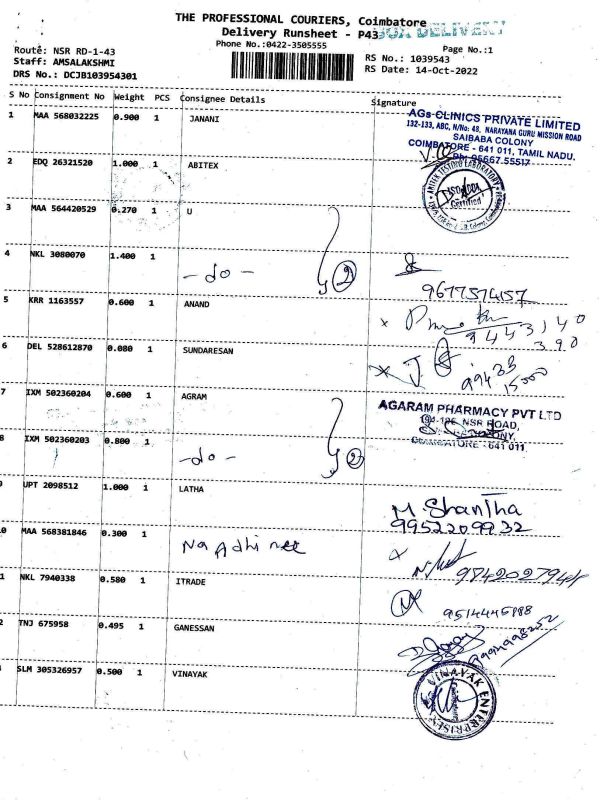 THE PROFESSIONAL COURIERS, Coimbatore
Delivery Runsheet - P43
BOX DELIVERY
Phone No.:0422-3505555
Page No.:1
Route: NSR RD-1-43
RS No.: 1039543
Staff: AMSALAKSHMI
RS Date: 14-Oct-2022
DRS No.: DCJB103954301
S No Consignment No Weight PCS Consignee Details Signature
1 MAA 568032225 0.900 1 JANANI
AGs CLINICS PRIVATE LIMITED
132-133, ABC, N/No: 48, NARAYANA GURU MISSION ROAD
SAIBABA COLONY
COIMBATORE - 641 011, TAMIL NADU.
Ph: 95667.55517
2 EDQ 26321520 1.000 1 ABITEX
ABITEX TESTING LABORATORY
Certified
3 MAA 564420529 0.270 1 U
4 NKL 3080070 1.400 1 -do- 2
9677574157
5 KRR 1163557 0.600 1 ANAND
x
9443140
390
6 DEL 528612870 0.080 1 SUNDARESAN
x J.
99433
15000
7 IXM 502360204 0.600 1 AGRAM
AGARAM PHARMACY PVT LTD
NSR ROAD,
COLONY,
COIMBATORE - 641 011
8 IXM 502360203 0.800 1 -do- 2
9 UPT 2098512 1.000 1 LATHA
M. Shantha
9952209932
0 MAA 568381846 0.300 1
x
1 NKL 7940338 0.580 1 ITRADE
9514445888
2 TNJ 675958 0.495 1 GANESSAN
SLM 305326957 0.500 1 VINAYAK
VINAYAK ENTERPRISES